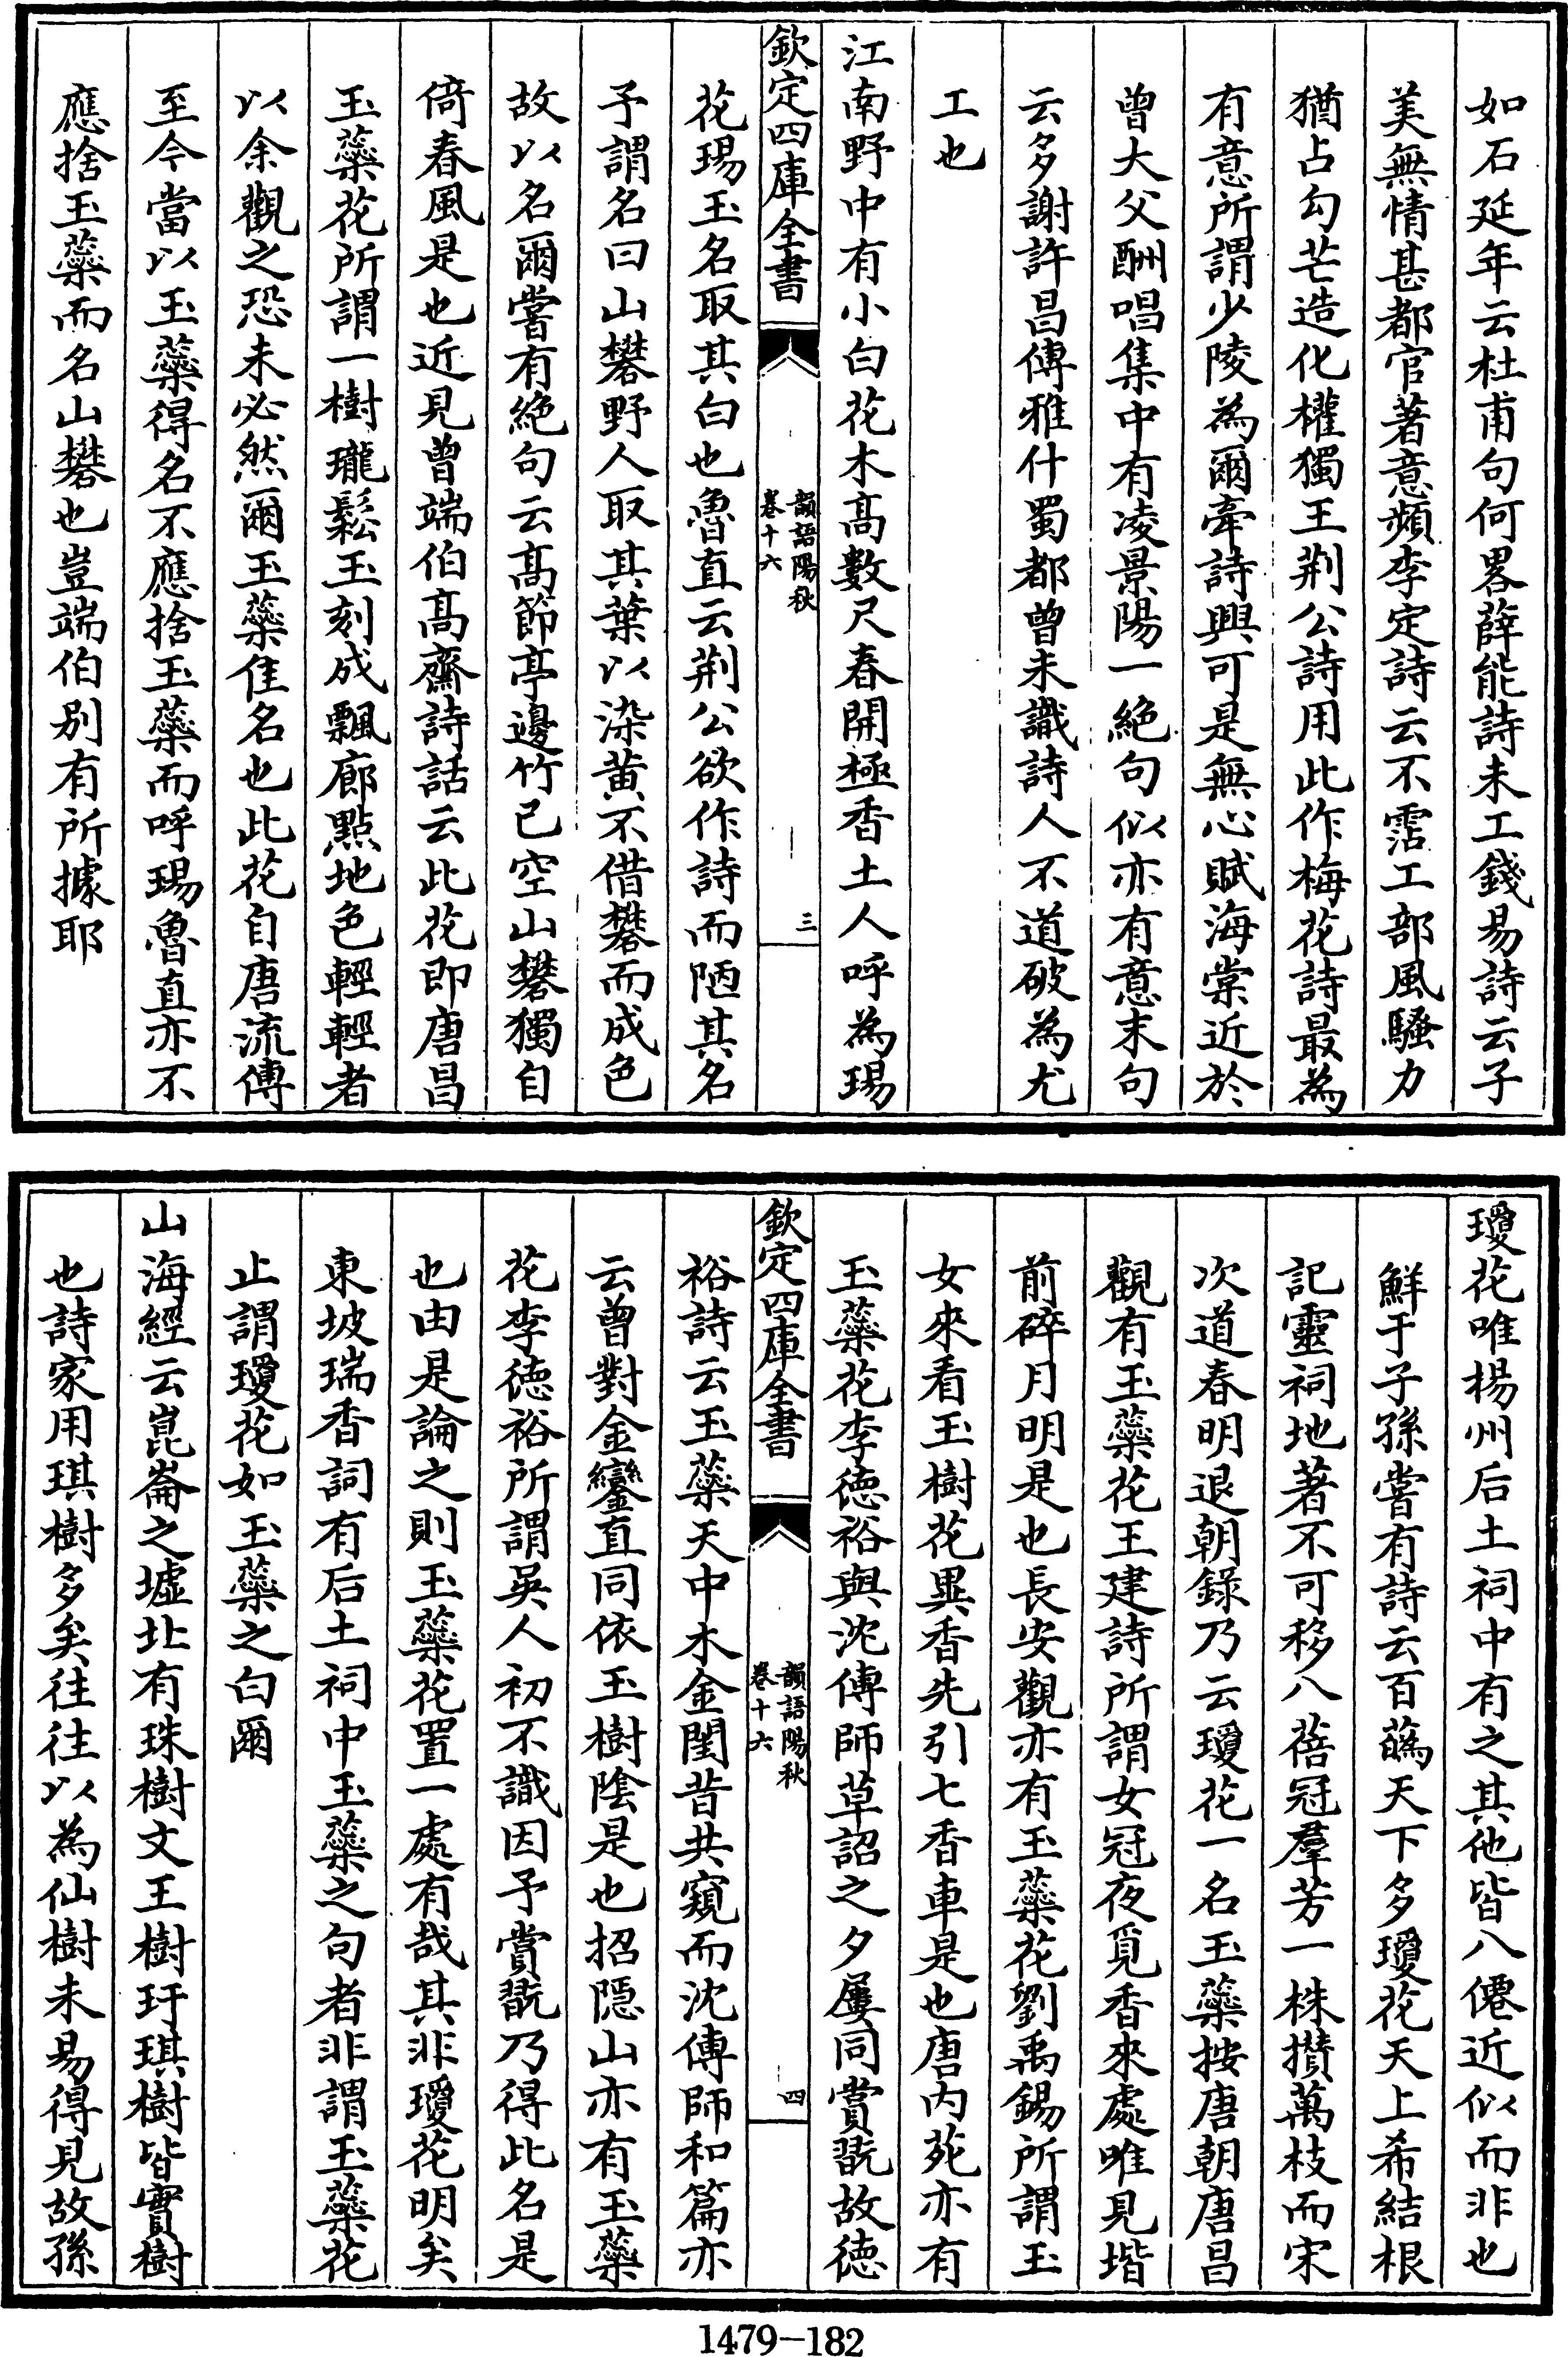 如石延年云杜甫句何畧薛能詩未工錢易詩云子
美無情甚都官著意頻李定詩云不霑工部風騷力
猶占勾芒造化權獨王荆公詩用此作梅花詩最為
有意所謂少陵為爾牽詩興可是無心賦海棠近於
曾大父酬唱集中有凌景陽一絶句似亦有意末句
云多謝許昌傳雅什蜀都曾未識詩人不道破為尤
工也
江南野中有小白花木髙數尺春開極香土人呼為瑒
欽定四庫全書
韻語陽秋
卷十六
三
花瑒玉名取其白也魯直云荆公欲作詩而陋其名
予謂名曰山礬野人取其葉以染黄不借礬而成色
故以名爾嘗有絶句云髙節亭邊竹已空山礬獨自
倚春風是也近見曾端伯髙齋詩話云此花即唐昌
玉蘂花所謂一樹瓏鬆玉刻成飄廊點地色輕輕者
以余觀之恐未必然爾玉蘂佳名也此花自唐流傳
至今當以玉蘂得名不應捨玉蘂而呼瑒魯直亦不
應捨玉蘂而名山礬也豈端伯别有所據耶
瓊花唯楊州后土祠中有之其他皆八僊近似而非也
鮮于子孫嘗有詩云百蘤天下多瓊花天上希結根
記靈祠地著不可移八蓓冠羣芳一株攢萬枝而宋
次道春明退朝錄乃云瓊花一名玉蘂按唐朝唐昌
觀有玉蘂花王建詩所謂女冠夜覓香來處唯見堦
前碎月明是也長安觀亦有玉蘂花劉禹錫所謂玉
女來看玉樹花異香先引七香車是也唐内苑亦有
玉蘂花李徳裕與沈傳師草詔之夕屢同賞翫故徳
欽定四庫全書
韻語陽秋
卷十六
四
裕詩云玉蘂天中木金閨昔共窺而沈傳師和篇亦
云曾對金鑾直同依玉樹陰是也招隠山亦有玉蘂
花李徳裕所謂吳人初不識因予賞翫乃得此名是
也由是論之則玉蘂花置一處有哉其非瓊花明矣
東坡瑞香詞有后土祠中玉蘂之句者非謂玉蘂花
止謂瓊花如玉蘂之白爾
山海經云崑崙之墟北有珠樹文王樹玗琪樹皆寳樹
也詩家用琪樹多矣往往以為仙樹未易得見故孫
1479-182